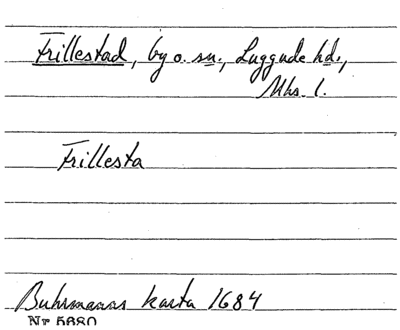 Frillestad, by o. sn., Luggude hd.,
Mhs. l.
Frillesta
Buhrmanns karta 1684
Nr 5680